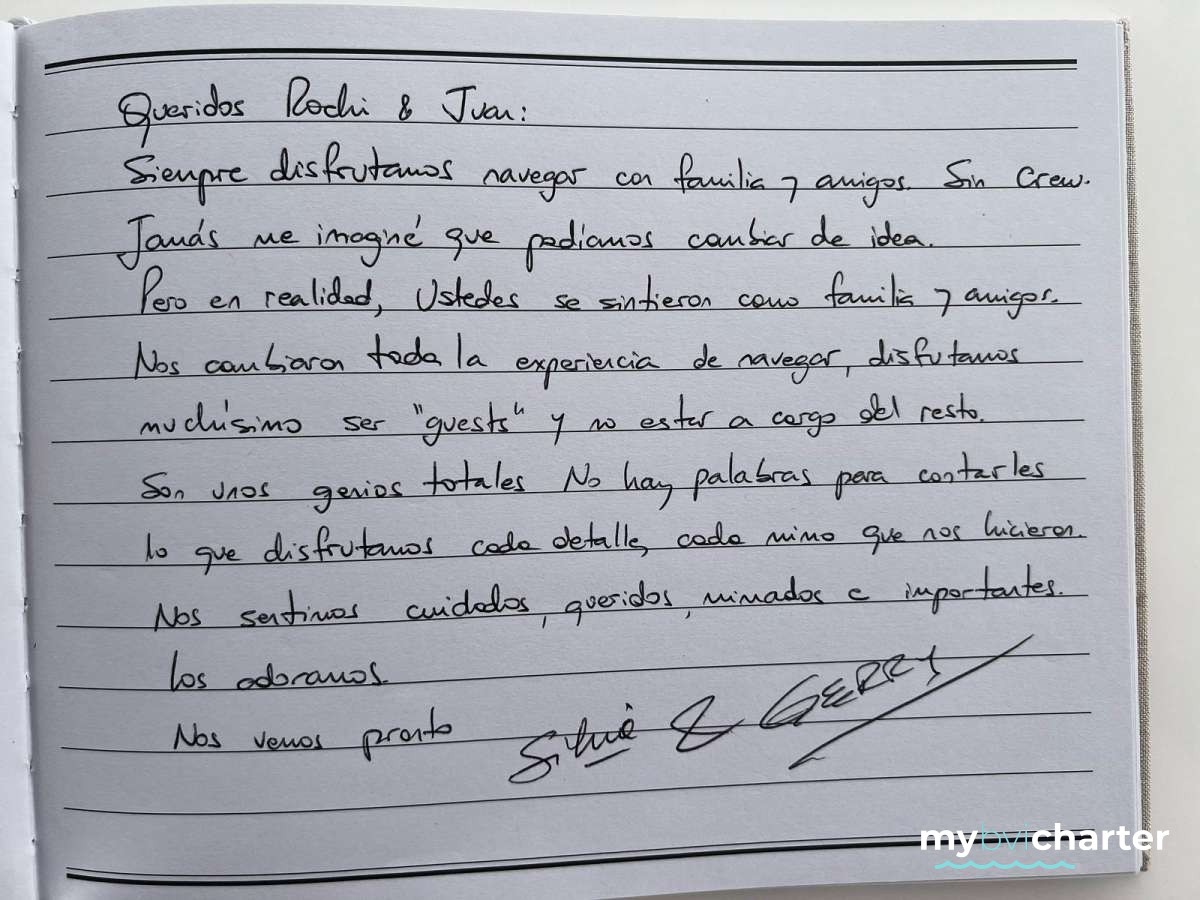 Queridos Rochi & Juan:
Siempre disfrutamos navegar con familia y amigos. Sin Crew.
Jamás me imaginé que podíamos cambiar de idea.
Pero en realidad, Ustedes se sintieron como familia y amigos.
Nos cambiaron toda la experiencia de navegar, disfutamos
muchísimo ser "guests" y no estar a cargo del resto.
Son unos genios totales No hay palabras para contarles
lo que disfrutamos cada detalle, cada mimo que nos hicieron.
Nos sentimos cuidados, queridos, mimados e importantes.
Los adoramos.
Nos vemos pronto
Silvia & GERRY
mybvicharter